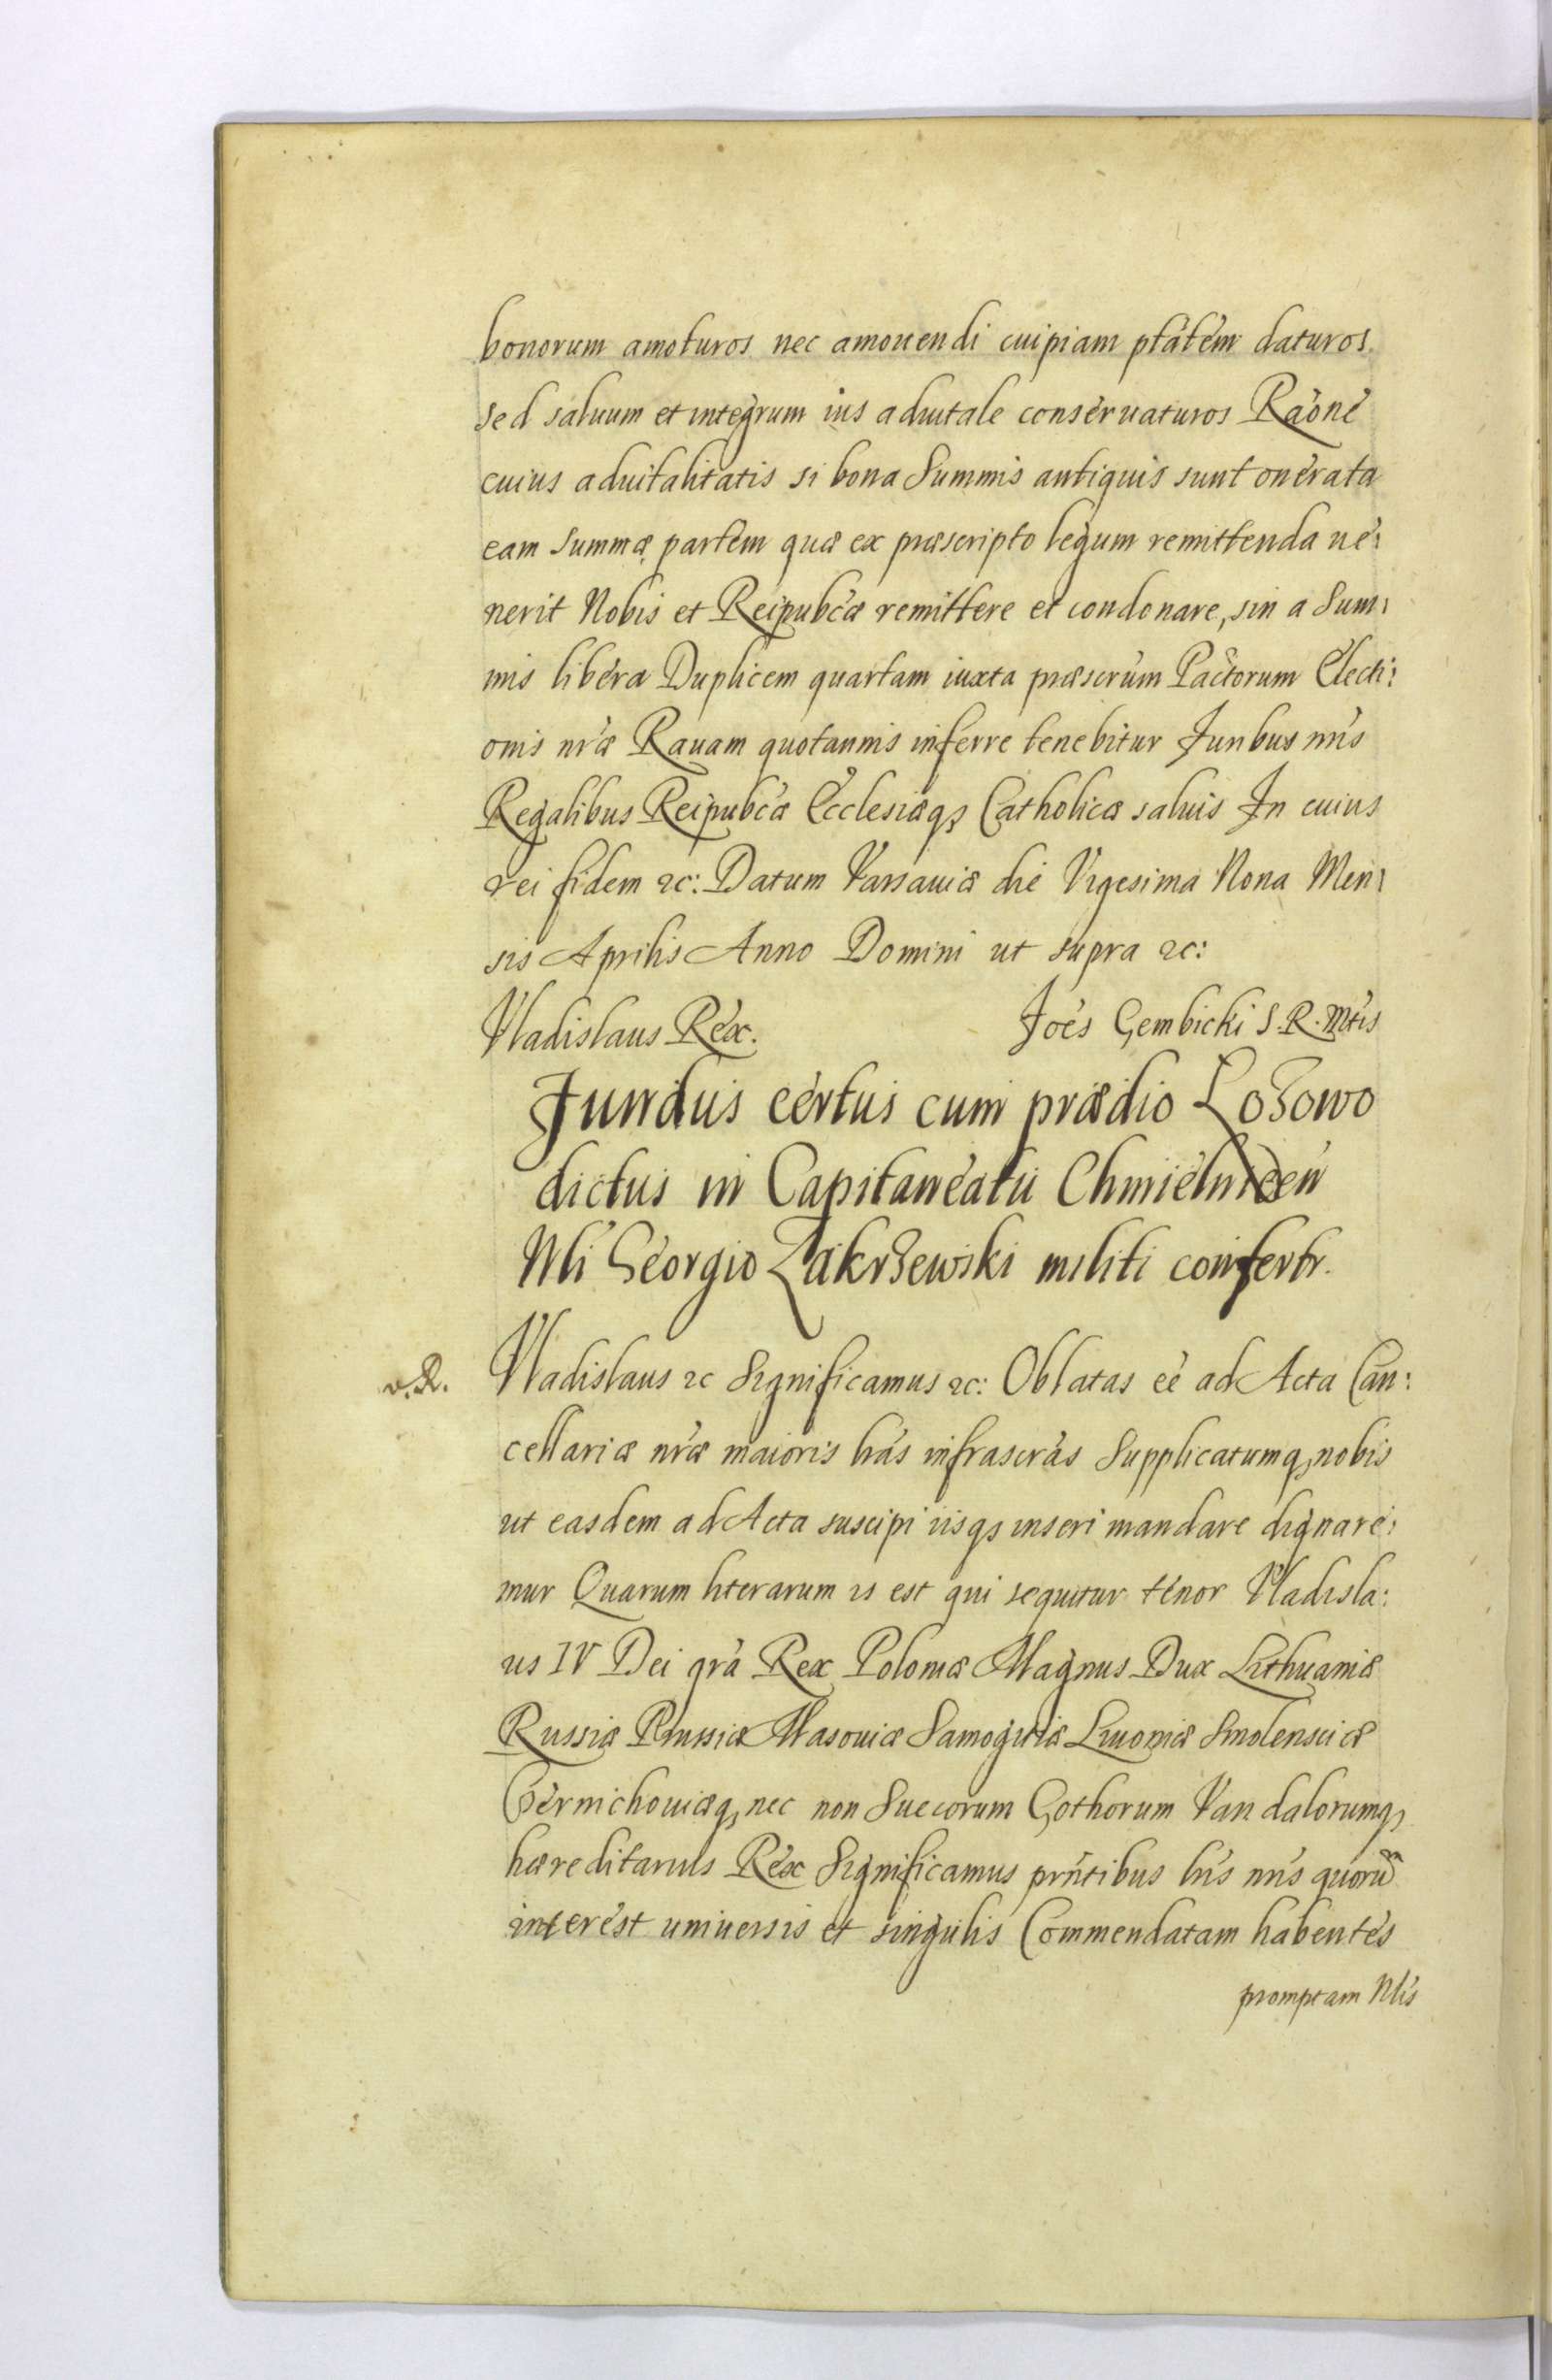 bonorum amoturos nec amouendi cuipiam ptátem daturos
sed saluum et integrum ius aduitale conseruaturos Raóne
cuius aduitalitatis si bona Summis antiquis sunt onerata
eam Summæ partem quæ ex præscripto legum remittenda ue:
nerit Nobis et Reipubcæ remittere et condonare, sin a Sum:
mis libera Duplicem quartam iuxta præscrúm Pactorum Electi:
onis nræ Rauam quotannis inferre tenebitur Iuribus nris
Regalibus Reipubcæ Ecclesiæq₃ Catholicæ saluis In cuius
rei fidem ꝛc: Datum Varsauiæ die Vigesima Nona Men:
sis Aprilis Anno Domini ut supra ꝛc:
Vladislaus Rex.
Joés Gembicki S. R. Mtis
Fundus certus cum prædio Lozowo
dictus in Capitaneatu Chmielnicen
Nli Georgio Zakrzewski militi confertr.
v. R.
Vladislaus ꝛc Significamus ꝛc: Oblatas eé ad Acta Can:
cellariæ nræ maioris lrás infrascrás Supplicatumq₃ nobis
ut easdem ad Acta suscipi iisq₃ inseri mandare dignare:
mur Quarum literarum is est qui sequitur tenor Vladisla:
us IV Dei grá Rex Poloniæ Magnus Dux Lithuaniæ
Russiæ Prussiæ Masouiæ Samogitiæ Liuoniæ Smolensciæ
Czernichouiæq₃ nec non Suecorum Gothorum Vandalorumq₃
hæreditarius Rex Significamus prńtibus lris nris quorũ
interest uniuersis et singulis Commendatam habentes
promptam Nlis